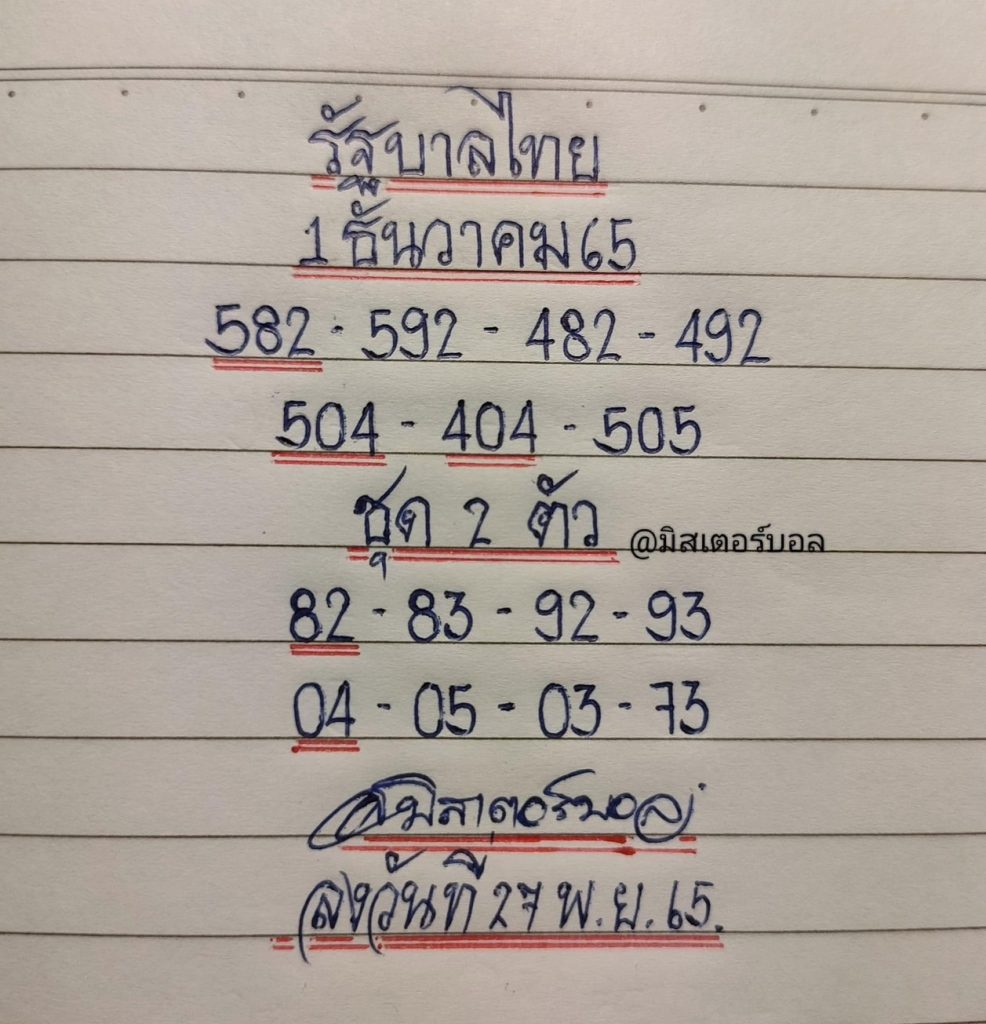 รัฐบาลไทย
1 ธันวาคม 65
582 - 592 - 482 - 492
504 - 404 - 505
ชุด 2 ตัว
@มิสเตอร์บอล
82 - 83 - 92 - 93
04 - 05 - 03 - 73
มิสเตอร์บอล
ลงวันที่ 27 พ.ย. 65.